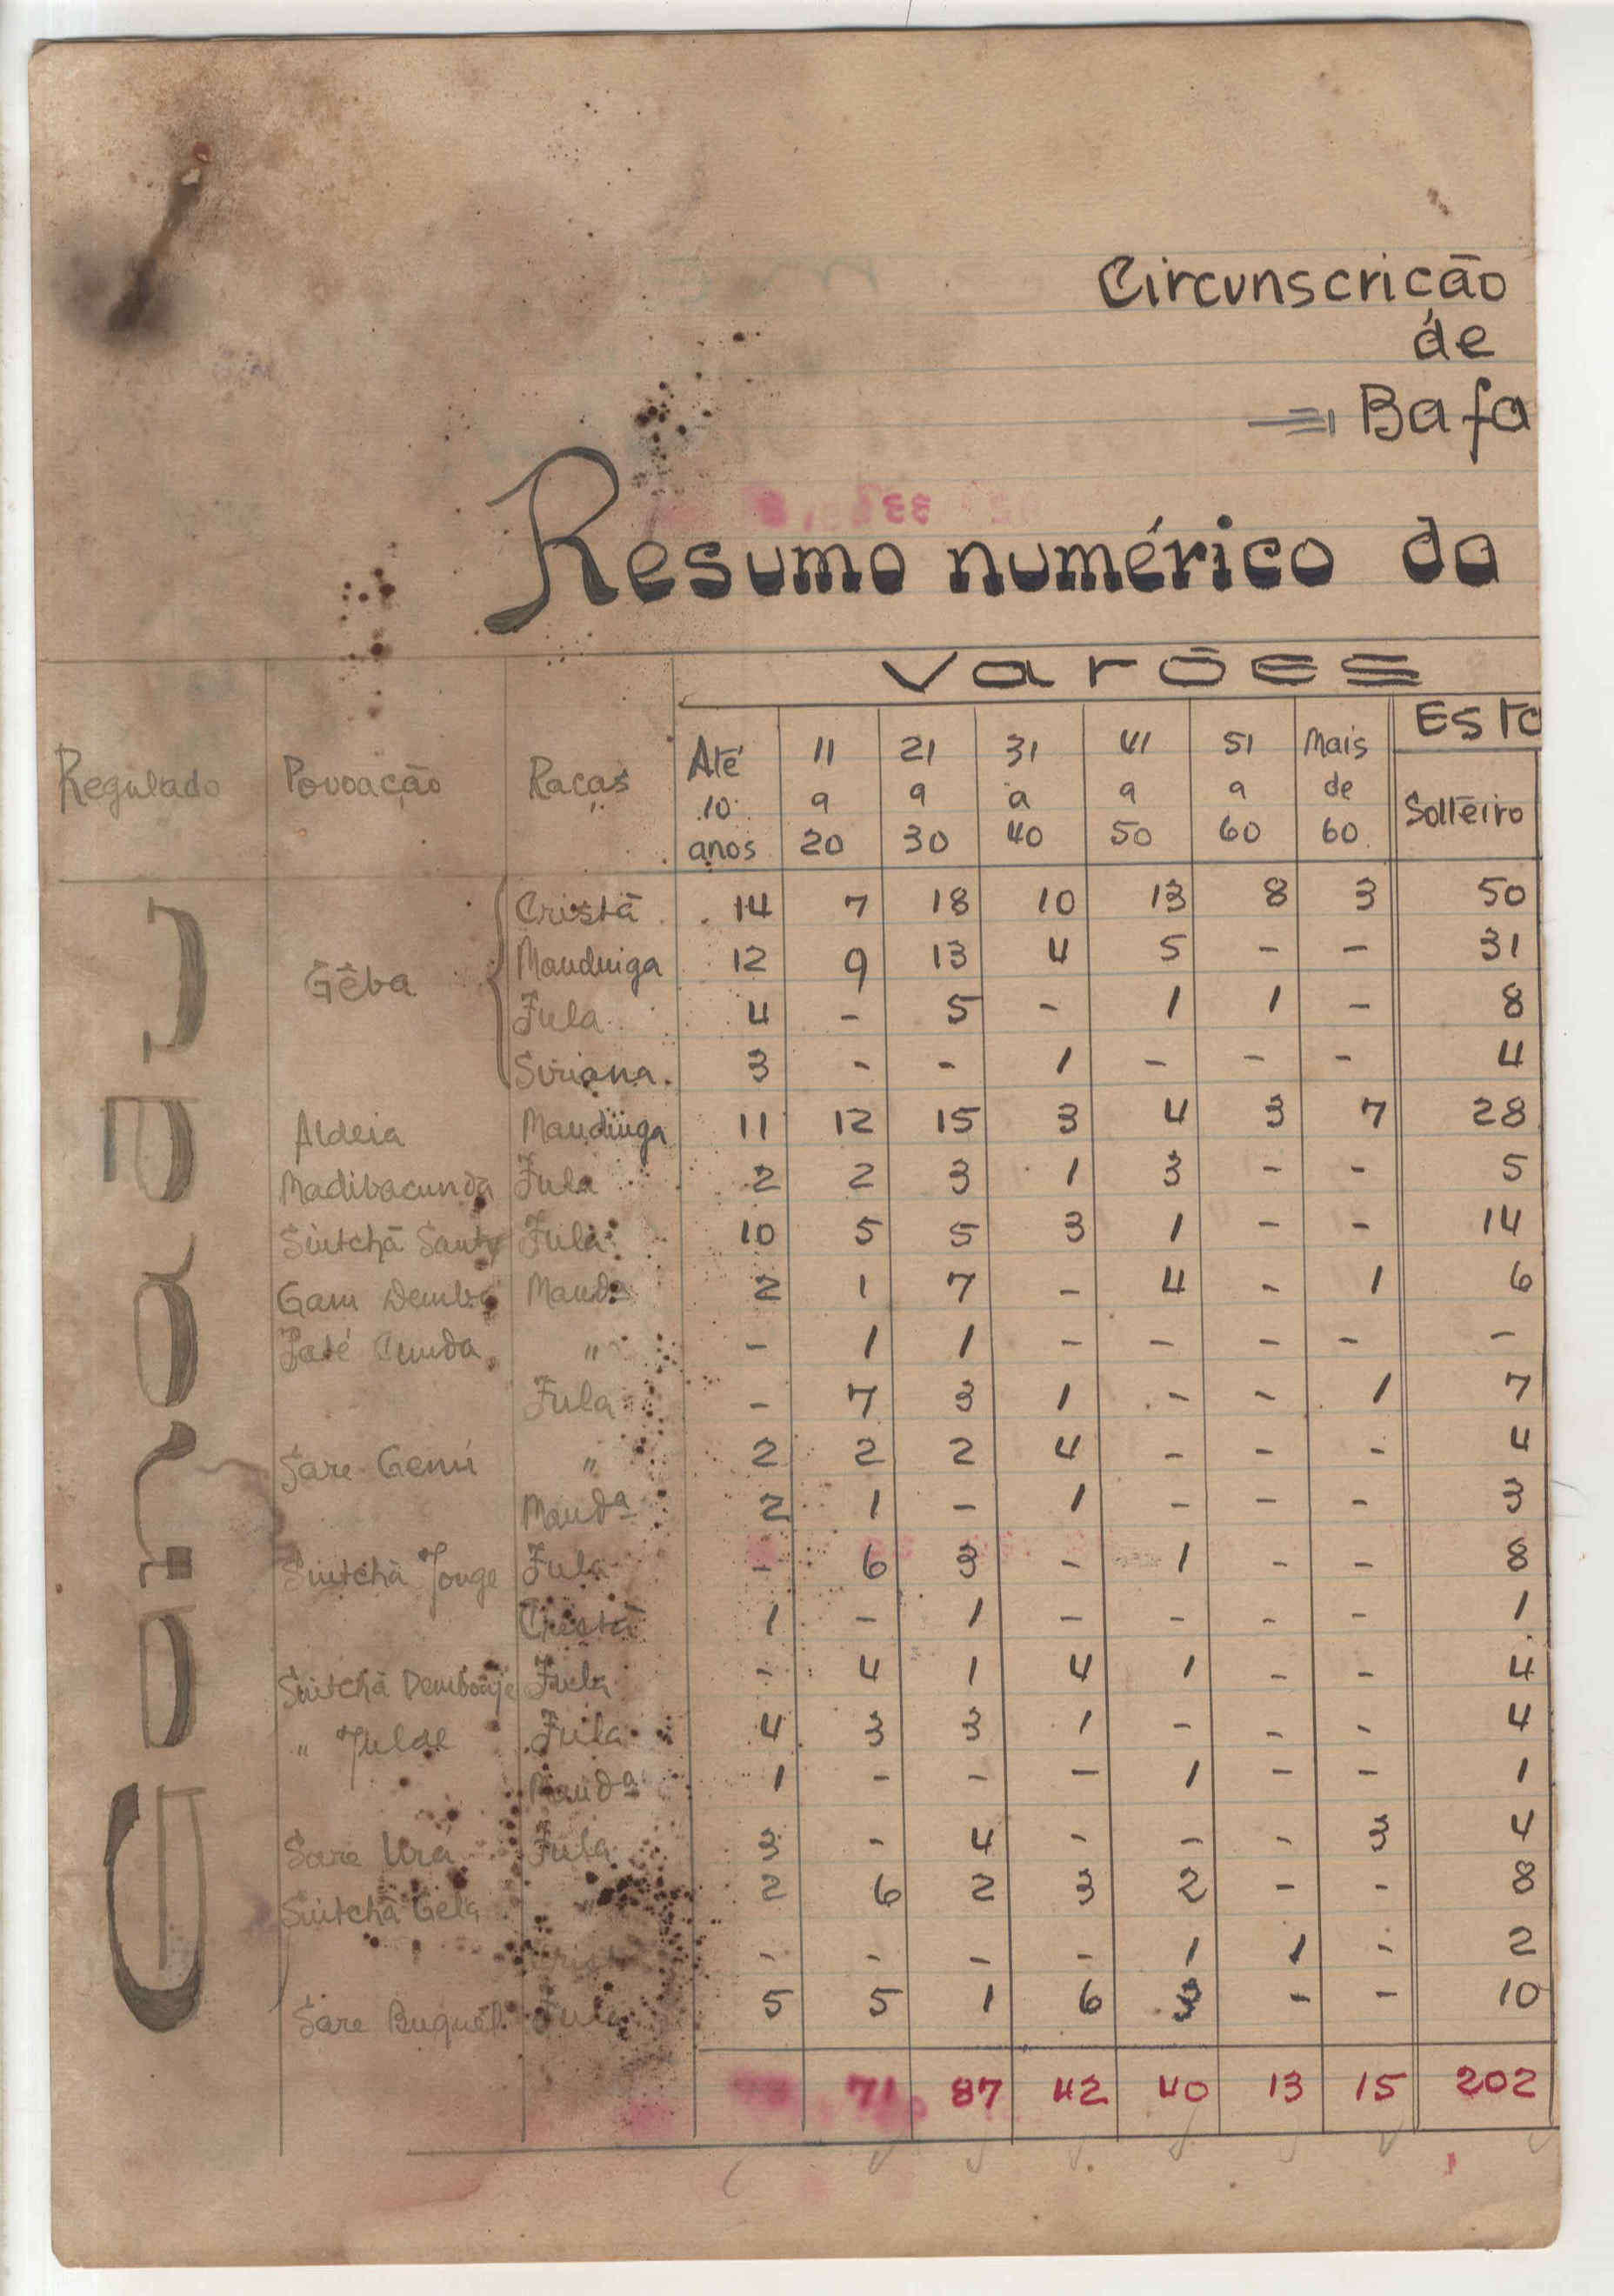 Circunscrição
de
Bafa
Resumo numérico da
Varões
Regulado Povoação Raças Até 10 anos 11 a 20 21 a 30 31 a 40 41 a 50 51 a 60 Mais de 60 Esta Solteiro
Ganadu
Gêba Cristã 14 7 18 10 13 8 3 50
Mandinga 12 9 13 4 5 - - 31
Fula 4 - 5 - 1 1 - 8
Siriana 3 - - 1 - - - 4
Aldeia Mandinga 11 12 15 3 4 3 7 28
Madibacunda Fula 2 2 3 1 3 - - 5
Sintchã Fula 10 5 5 3 1 - - 14
Gam Demba Mandª 2 1 7 - 4 - 1 6
Faté Cunda " - 1 1 - - - - -
Fula - 7 3 1 - - 1 7
Sare Genú " 2 2 2 4 - - - 4
Mandª 2 1 - 1 - - - 3
Sintchã Fula - 6 3 - 1 - - 8
Cristã 1 - 1 - - - - 1
Sintchã Fula - 4 1 4 1 - - 4
" Fula 4 3 3 1 - - - 4
Mandª 1 - - - 1 - - 1
Sare Fula 3 - 4 - - - 3 4
Sintchã Gela " 2 6 2 3 2 - - 8
- - - - 1 1 - 2
Sare Fula 5 5 1 6 3 - - 10
71 87 42 40 13 15 202